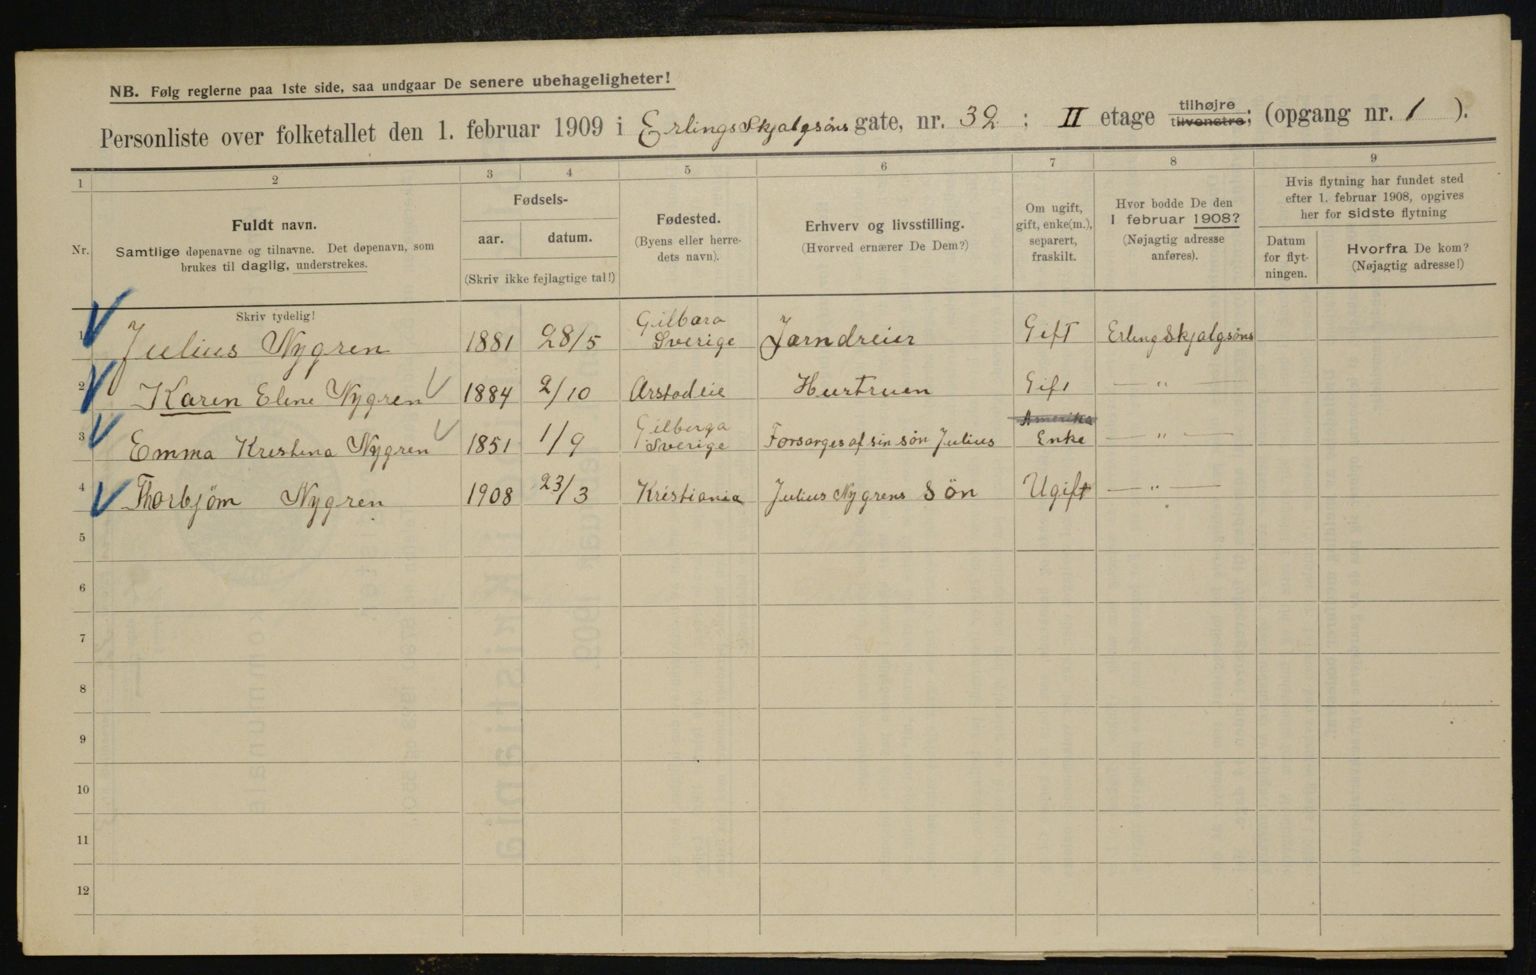 NB. Følg reglerne paa 1ste side, saa undgaar De senere ubehageligheter!
Personliste over folketallet den 1. februar 1909 i Erlings Skjalgsöns gate, nr. 32 ; II etage tilhøjre tilvenstre; (opgang nr. 1 ).
1 2 3 4 5 6 7 8 9
Nr.
Fuldt navn.
Samtlige døpenavne og tilnavne. Det døpenavn, som
brukes til daglig, understrekes.
Fødsels-
aar. datum.
(Skriv ikke fejlagtige tal!)
Fødested.
(Byens eller herre-
dets navn).
Erhverv og livsstilling.
(Hvorved ernærer De Dem?)
Om ugift,
gift, enke(m.),
separert,
fraskilt.
Hvor bodde De den
1 februar 1908?
(Nøjagtig adresse
anføres).
Hvis flytning har fundet sted
efter 1. februar 1908, opgives
her for sidste flytning
Datum
for flyt-
ningen.
Hvorfra De kom?
(Nøjagtig adresse!)
Skriv tydelig!
1 Julius Nygren 1881 28/5 Gilbara Sverige Jarndreier Gift Erling Skjalgsöns
2 Karen Eline Nygren 1884 2/10 Arstadeie Hustruen Gift — " —
3 Emma Kristina Nygren 1851 1/9 Gilberga Sverige Forsørges af sin søn Julius Amerika Enke — " —
4 Thorbjöm Nygren 1908 23/3 Kristiania Julius Nygrens Sön Ugift — " —
5
6
7
8
9
10
11
12